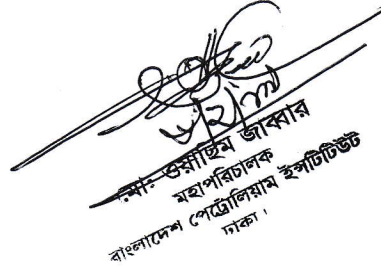 মো: ওয়াছিম জাব্বার
মহাপরিচালক
বাংলাদেশ পেট্রোলিয়াম ইন্সটিটিউট
ঢাকা।